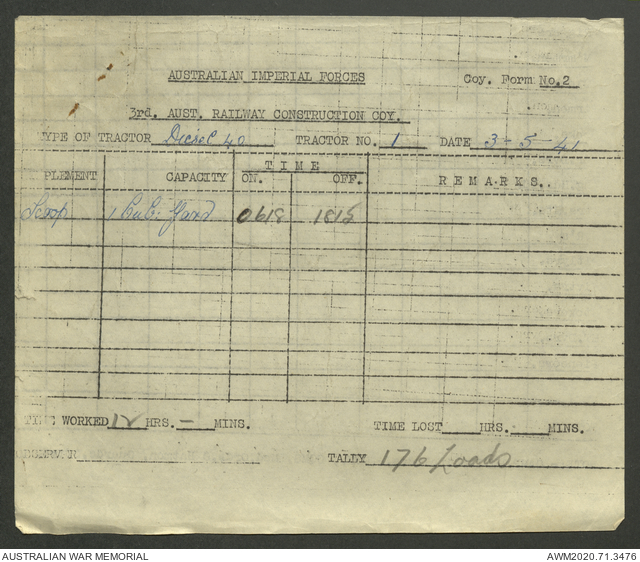 AUSTRALIAN IMPERIAL FORCES Coy. Form No.2
3rd. AUST. RAILWAY CONSTRUCTION COY.
TYPE OF TRACTOR Diesel 40 TRACTOR NO. 1 DATE 3-5-41
PLEMENT CAPACITY TIME ON. OFF. REMARKS.
Scoop 1 Cub. Yard 0618 1815
TIME WORKED 12 HRS. - MINS. TIME LOST HRS. MINS.
TALLY 176 Loads
AUSTRALIAN WAR MEMORIAL AWM2020.71.3476